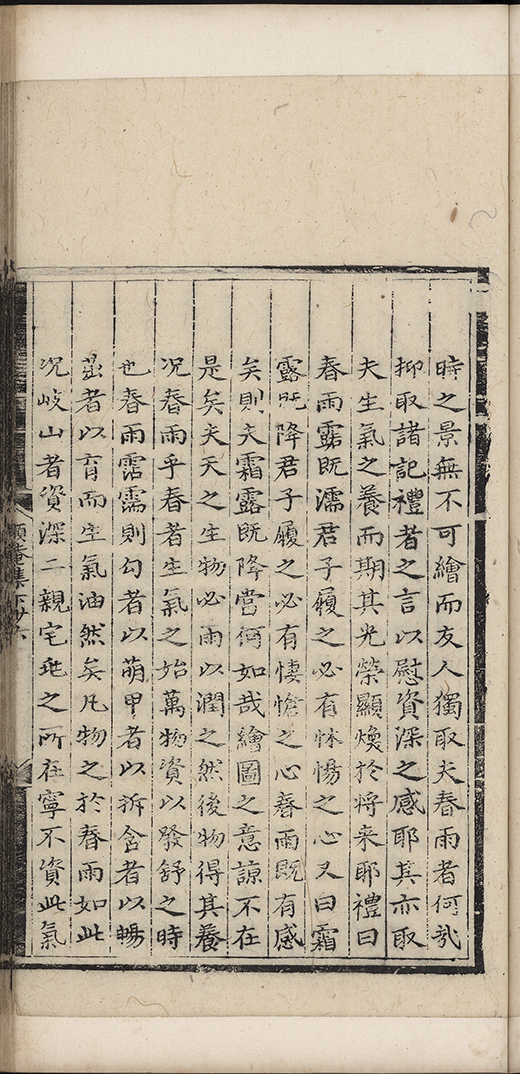 時之景無不可繪而友人獨取夫春雨者何哉
抑取諸記禮者之言以慰資深之感耶其亦取
夫生氣之養而期其光榮顯煥於将来耶禮曰
春雨露既濡君子履之必有怵惕之心又曰霜
露既降君子履之必有悽愴之心春雨既有感
矣則夫霜露既降當何如哉繪圖之意諒不在
是矣夫天之生物必雨以潤之然後物得其養
况春雨乎春者生氣之始萬物資以發舒之時
也春雨霑濡則勾者以萌甲者以拆含者以暢
茁者以育而生氣油然矣凡物之於春雨如此
况岐山者資深二親宅兆之所在寧不資此氣
頤菴集